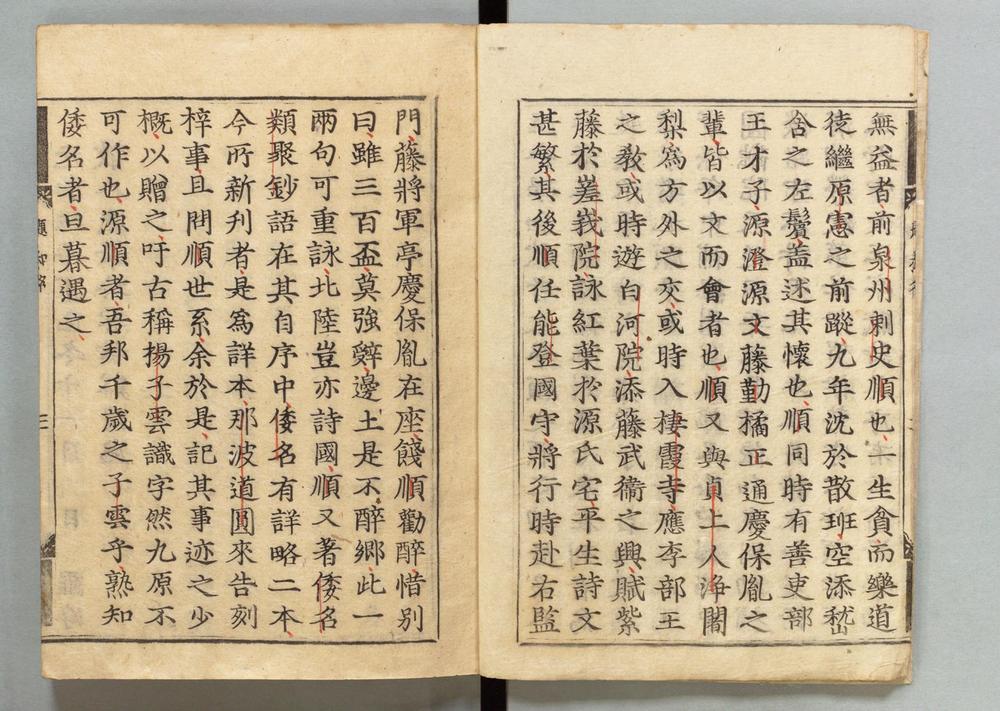 無益者前泉州刺史順也一生貪而樂道
徒繼原憲之前蹤九年沈於散班空添嵆
含之左鬢盖述其懷也順同時有善吏部
王才子源澄源文藤勤橘正通慶保胤之
輩皆以文而會者也順又與貞上人淨闍
梨爲方外之交或時入棲霞寺應李部王
之敎或時遊白河院添藤武衞之興賦紫
藤於嵳峩院詠紅葉於源氏宅平生詩文
甚繁其後順任能登國守將行時赴右監
門藤將軍亭慶保胤在座餞順勸醉惜別
曰雖三百盃莫強辭邊土是不醉郷此一
兩句可重詠北陸豈亦詩國順又著倭名
類聚鈔語在其自序中倭名有詳略二本
今所新刊者是爲詳本那波道圓來告刻
梓事且問順世系余於是記其事迹之少
概以贈之吁古稱揚子雲識字然九原不
可作也源順者吾邦千歲之子雲乎熟知
倭名者旦暮遇之